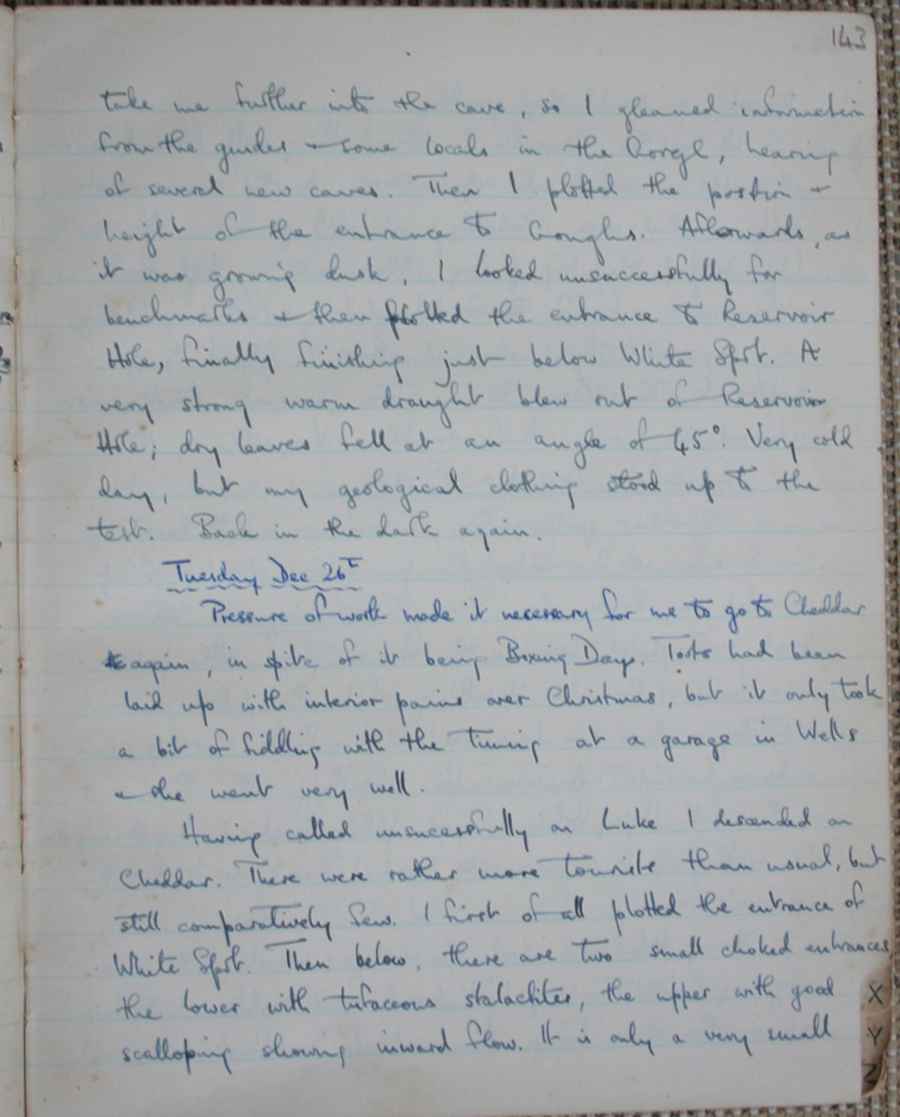 143
take me further into the cave, so I gleaned information
from the guides + some locals in the Gorge, hearing
of several new caves. Then I plotted the position +
height of the entrance to Goughs. Afterwards, as
it was growing dusk, I looked unsuccessfully for
benchmarks + then plotted the entrance to Reservoir
Hole, finally finishing just below White Spot. A
very strong warm draught blew out of Reservoir
Hole; dry leaves fell at an angle of 45°. Very cold
day, but my geological clothing stood up to the
test. Back in the dark again.
Tuesday Dec 26t
Pressure of work made it necessary for me to go to Cheddar
again, in spite of it being Boxing Day. had been
laid up with interior pains over Christmas, but it only took
a bit of fiddling with the timing at a garage in Wells
+ she went very well.
Having called unsucessfully on Luke I descended on
Cheddar. There were rather more tourists than usual, but
still comparatively few. I first of all plotted the entrance of
White Spot. Then below, there are two small choked entrances
the lower with tufaceous stalactites, the upper with good
scalloping showing inward flow. It is only a very small
X
Y
Z